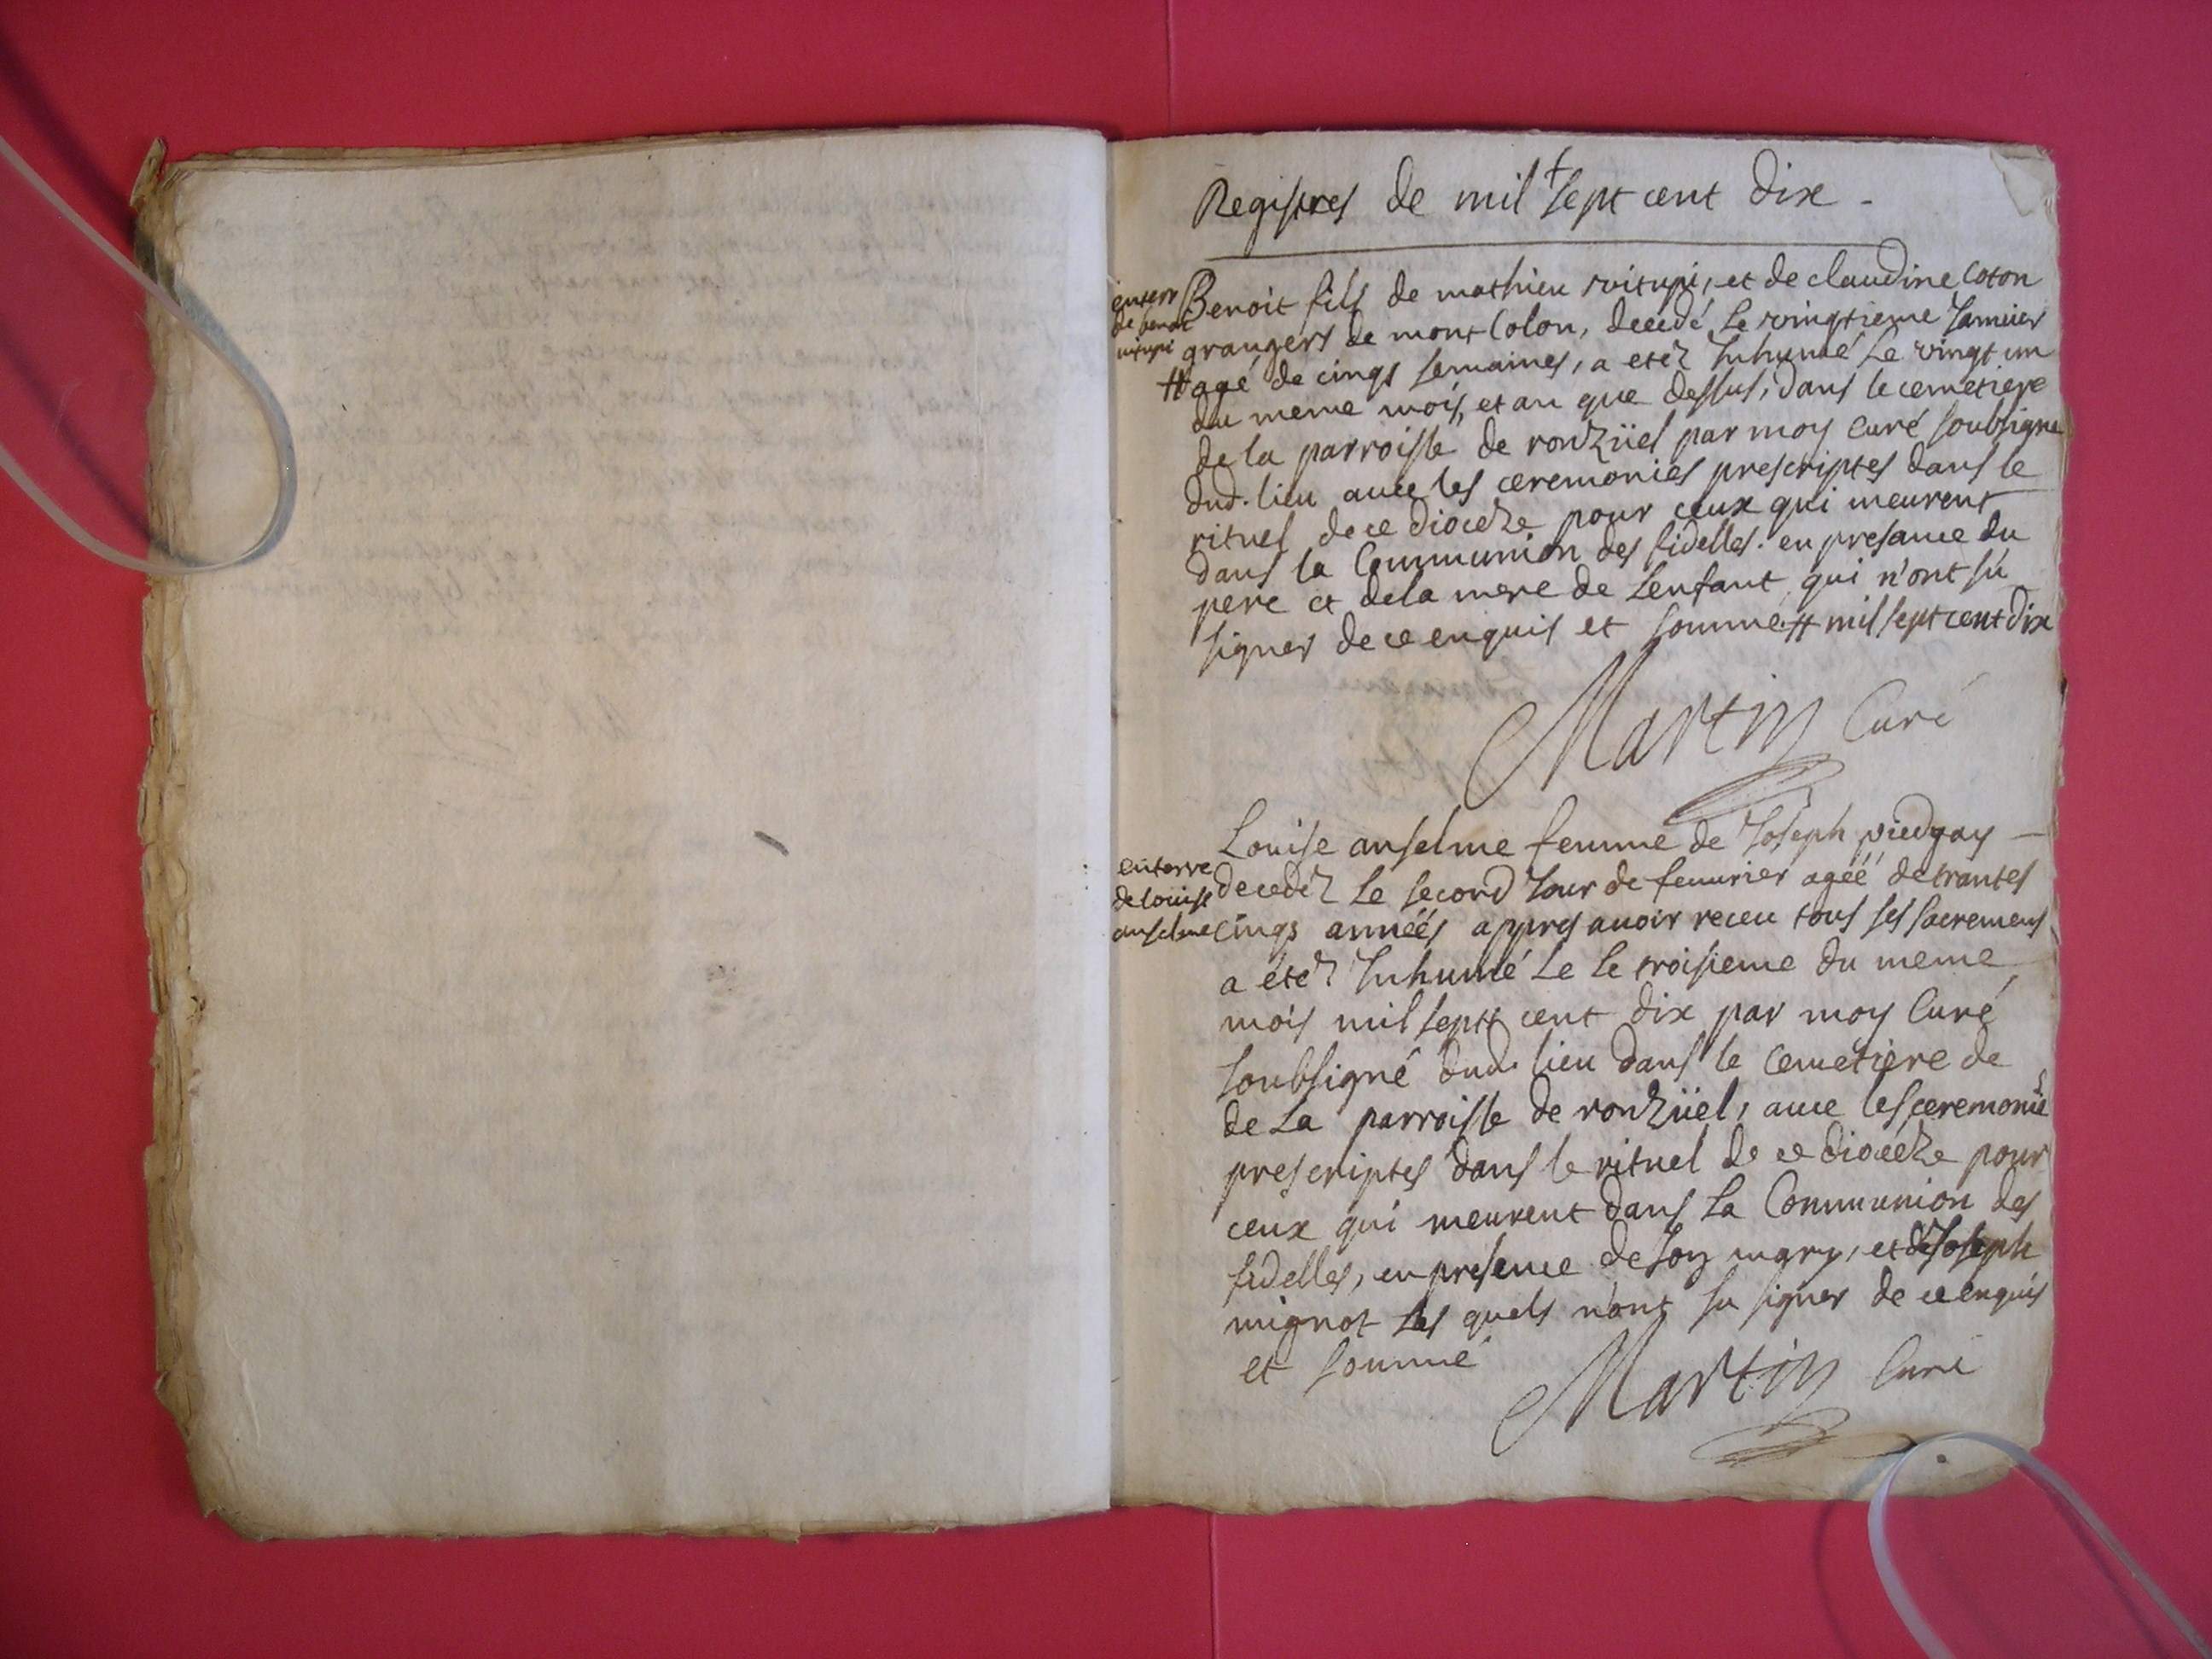 Registres de mil sept cent dix -
enterr
de benoit
vitupi
Benoit fils de mathieu vitupi, et de claudine Coton
grangers de mont Colon, decedé Le vingtieme Januier
# agé de cinqs semaines, a etéz Inhumé Le vingt un
du meme mois, et an que dessus, dans le cemetiere
de la parroisse de ronzüel par moy curé soubsigné
dud. lieu auec les ceremonies prescriptes dans le
rituel de ce dioceze pour ceux qui meurent
dans la Communion des fidelles. en presance du
pere et dela mere de Lenfant, qui n'ont sú
signer de ce enquis et sommé. # mil sept cent dix
Martin Curé
enterre
de louise
anselme
Louise anselme femme de Joseph piedgay -
decedéz Le second Jour de feuurier agéé de trantes
cinqs annéés appres auoir receu tous ses sacremens
a étéz Inhumé Le Le troisieme du meme
mois mil sept cent dix par moy Curé
soubsigné dud. lieu dans le cemetiere de
de La parroisse de ronzüel, auec les ceremonies
prescriptes dans le rituel de ce dioceze pour
ceux qui meurent dans La Communion des
fidelles, en presence de son mary, et de Joseph
mignot Les quels n'ont su signer de ce enquis
et sommé
Martin Curé